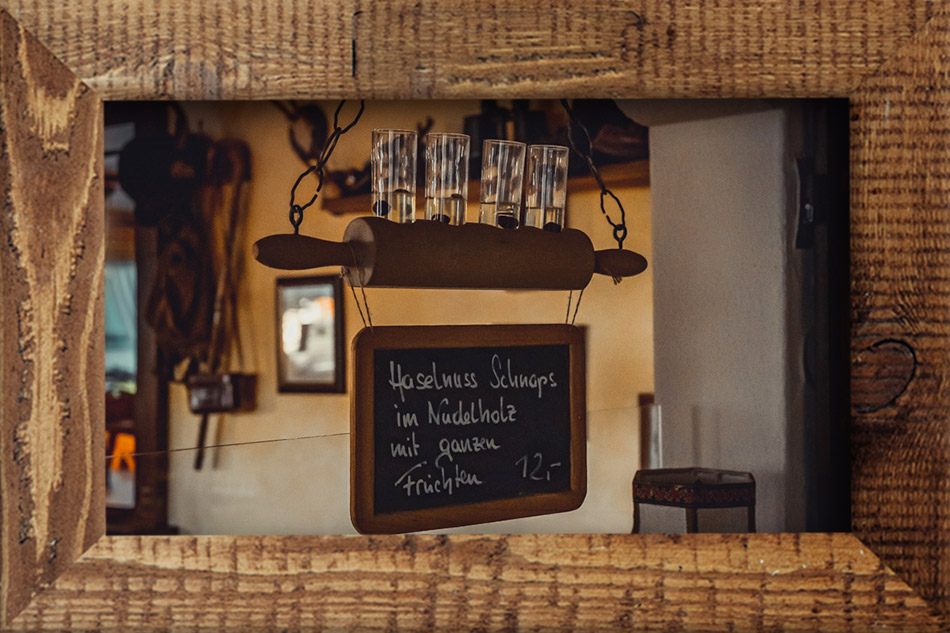 Haselnuss Schnaps
im Nudelholz
mit ganzen
Früchten 12,-